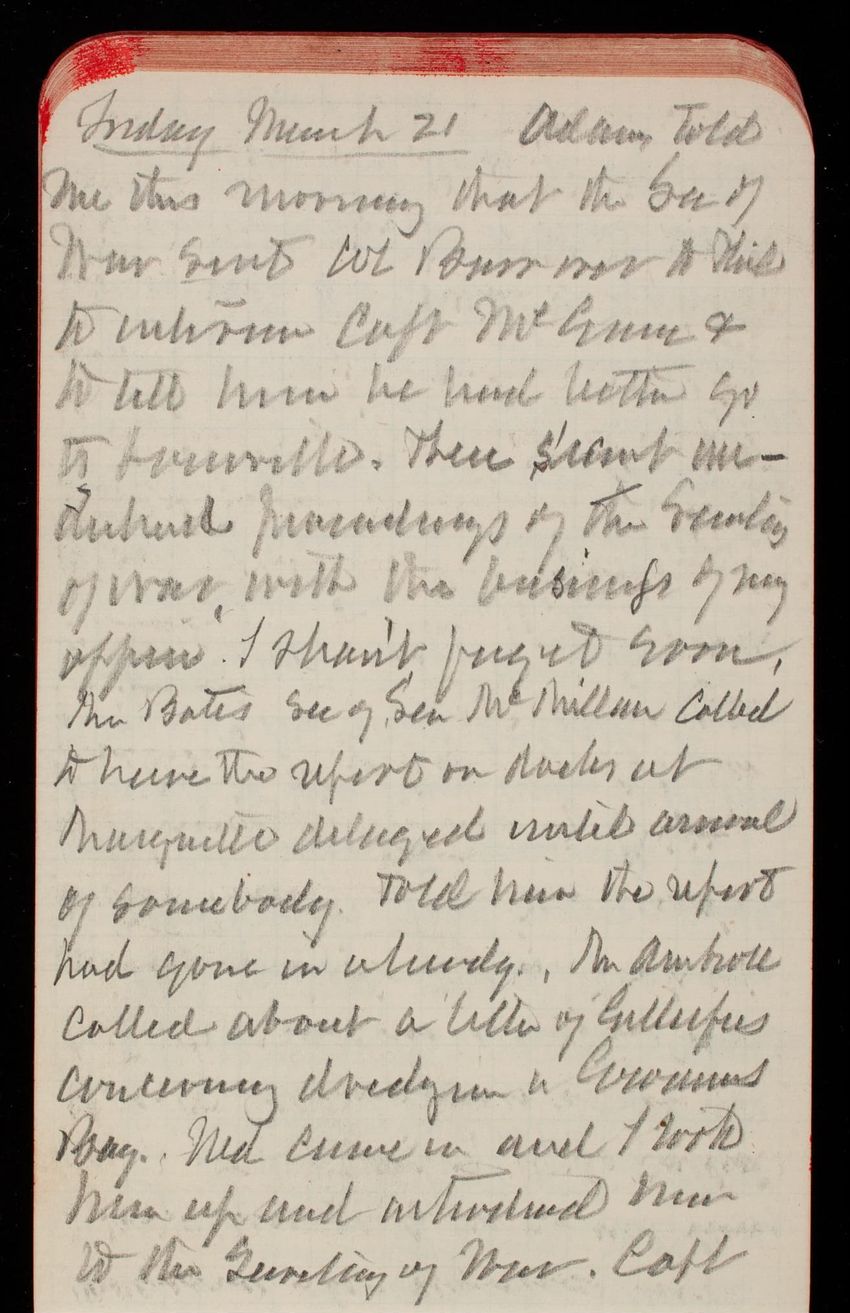 Friday March 21 Adams told
me this morning that the Sec of
War sent Col Barr over to Phil
to interview Capt McGraw &
to tell him he had better go
to Louisville. These s'eant un-
dertaned proceedings of the Secretary
of War, with the business of my
office. I shan't forget soon.
Mr Bates Sec of Sen McMillan called
to have the report on docks at
Marquette delayed until arrival
of somebody. Told him the report
had gone in already. Mr Ambrose
called about a letter of Gillespies
concerning dredging in Gowanus
Bay. Ned came in and I took
him up and introduced him
to the Secretary of War. Capt